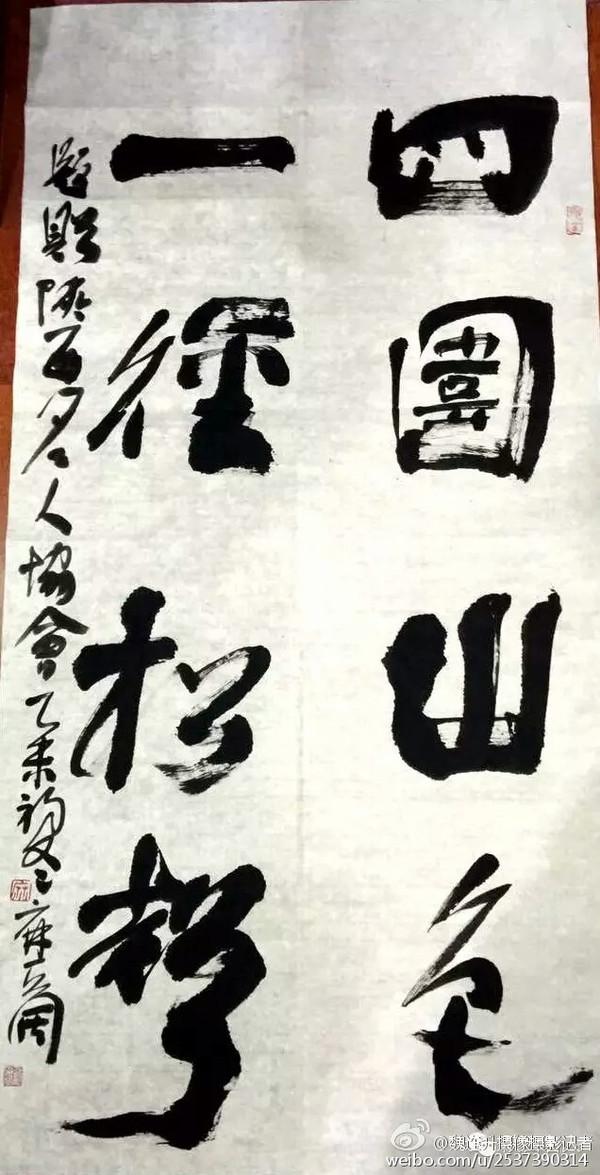 四圍山色
一徑松聲
題贈陝西名人協會乙未初夏麻天阔
摄影记者
weibo.com/u/2537390314